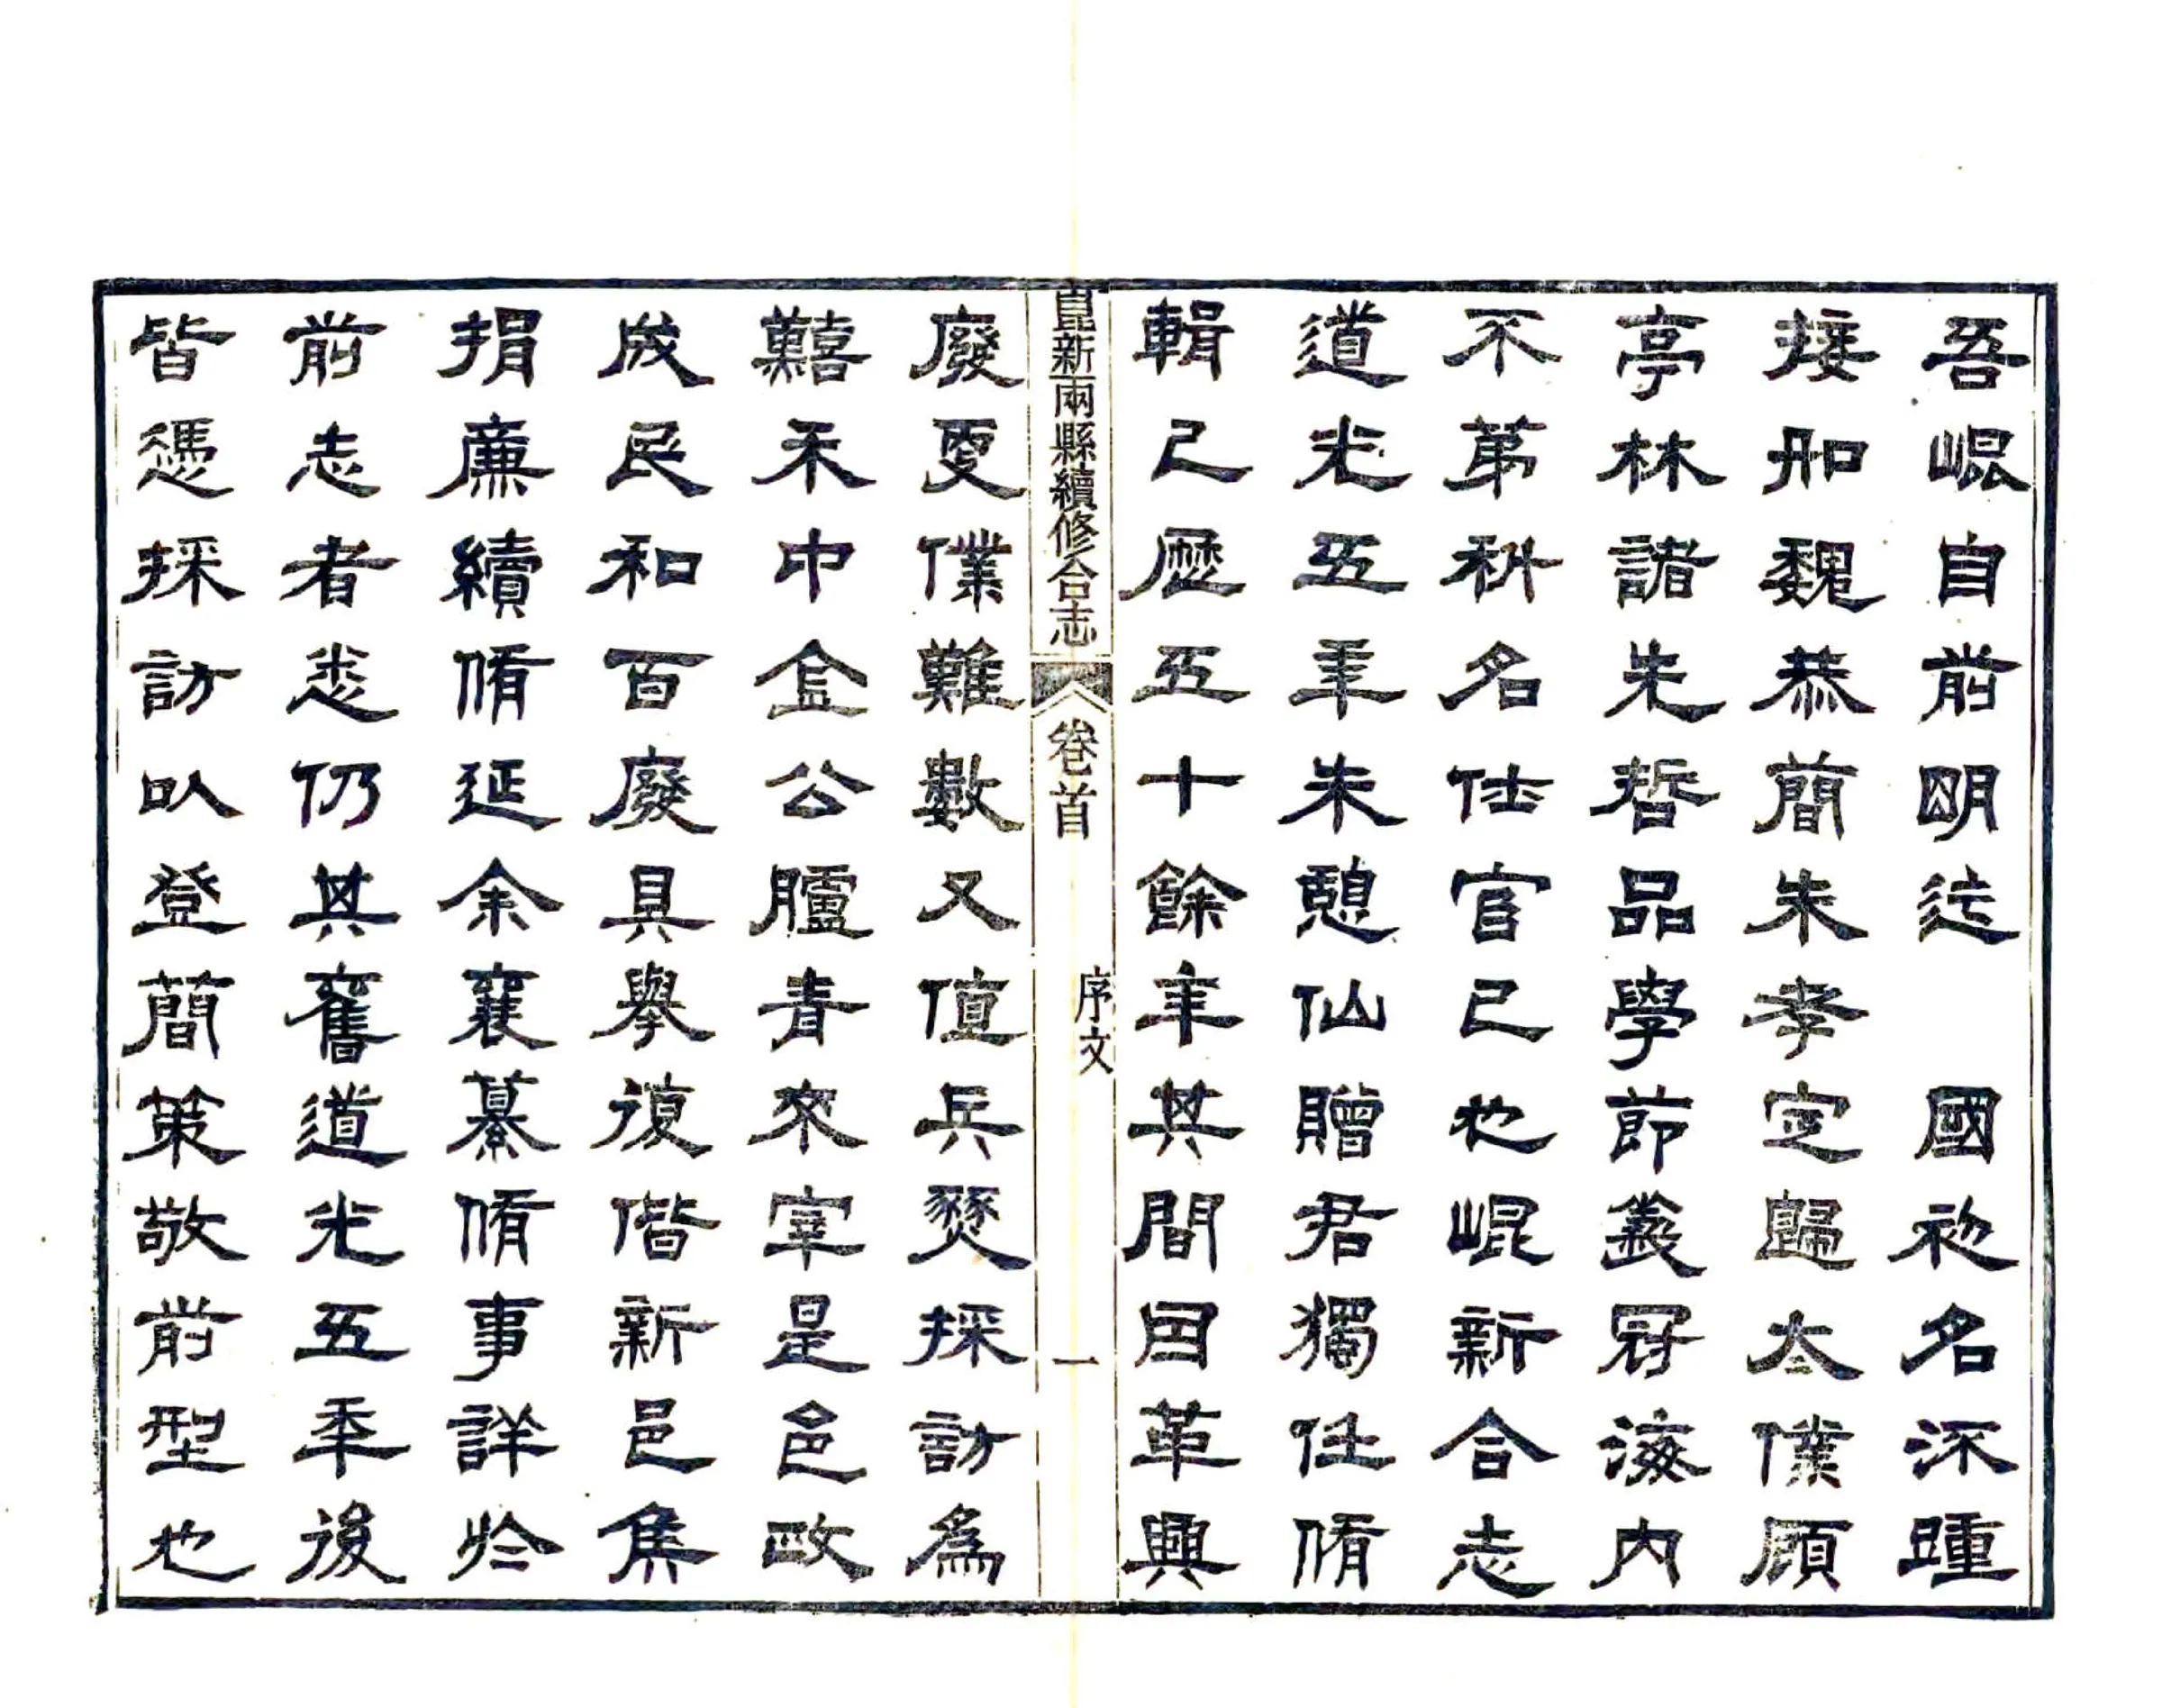 吾崐自前朙迄　國初名流踵
接如魏恭簡朱孝定歸太僕顧
亭林諸先哲品學節義冠海内
不第科名仕宦已也崐新合志
道光五年朱憩仙贈君獨任脩
輯已歷五十餘年其間因革興
昆新兩縣續修合志　卷首　序文　一
廢更僕難數又值兵燹採訪為
囏禾中金公臚青來宰是邑政
成民和百廢具舉復偕新邑焦
捐廉續脩延余襄纂脩事詳於
前志者悉仍其舊道光五年後
皆憑採訪以登簡策敬前型也